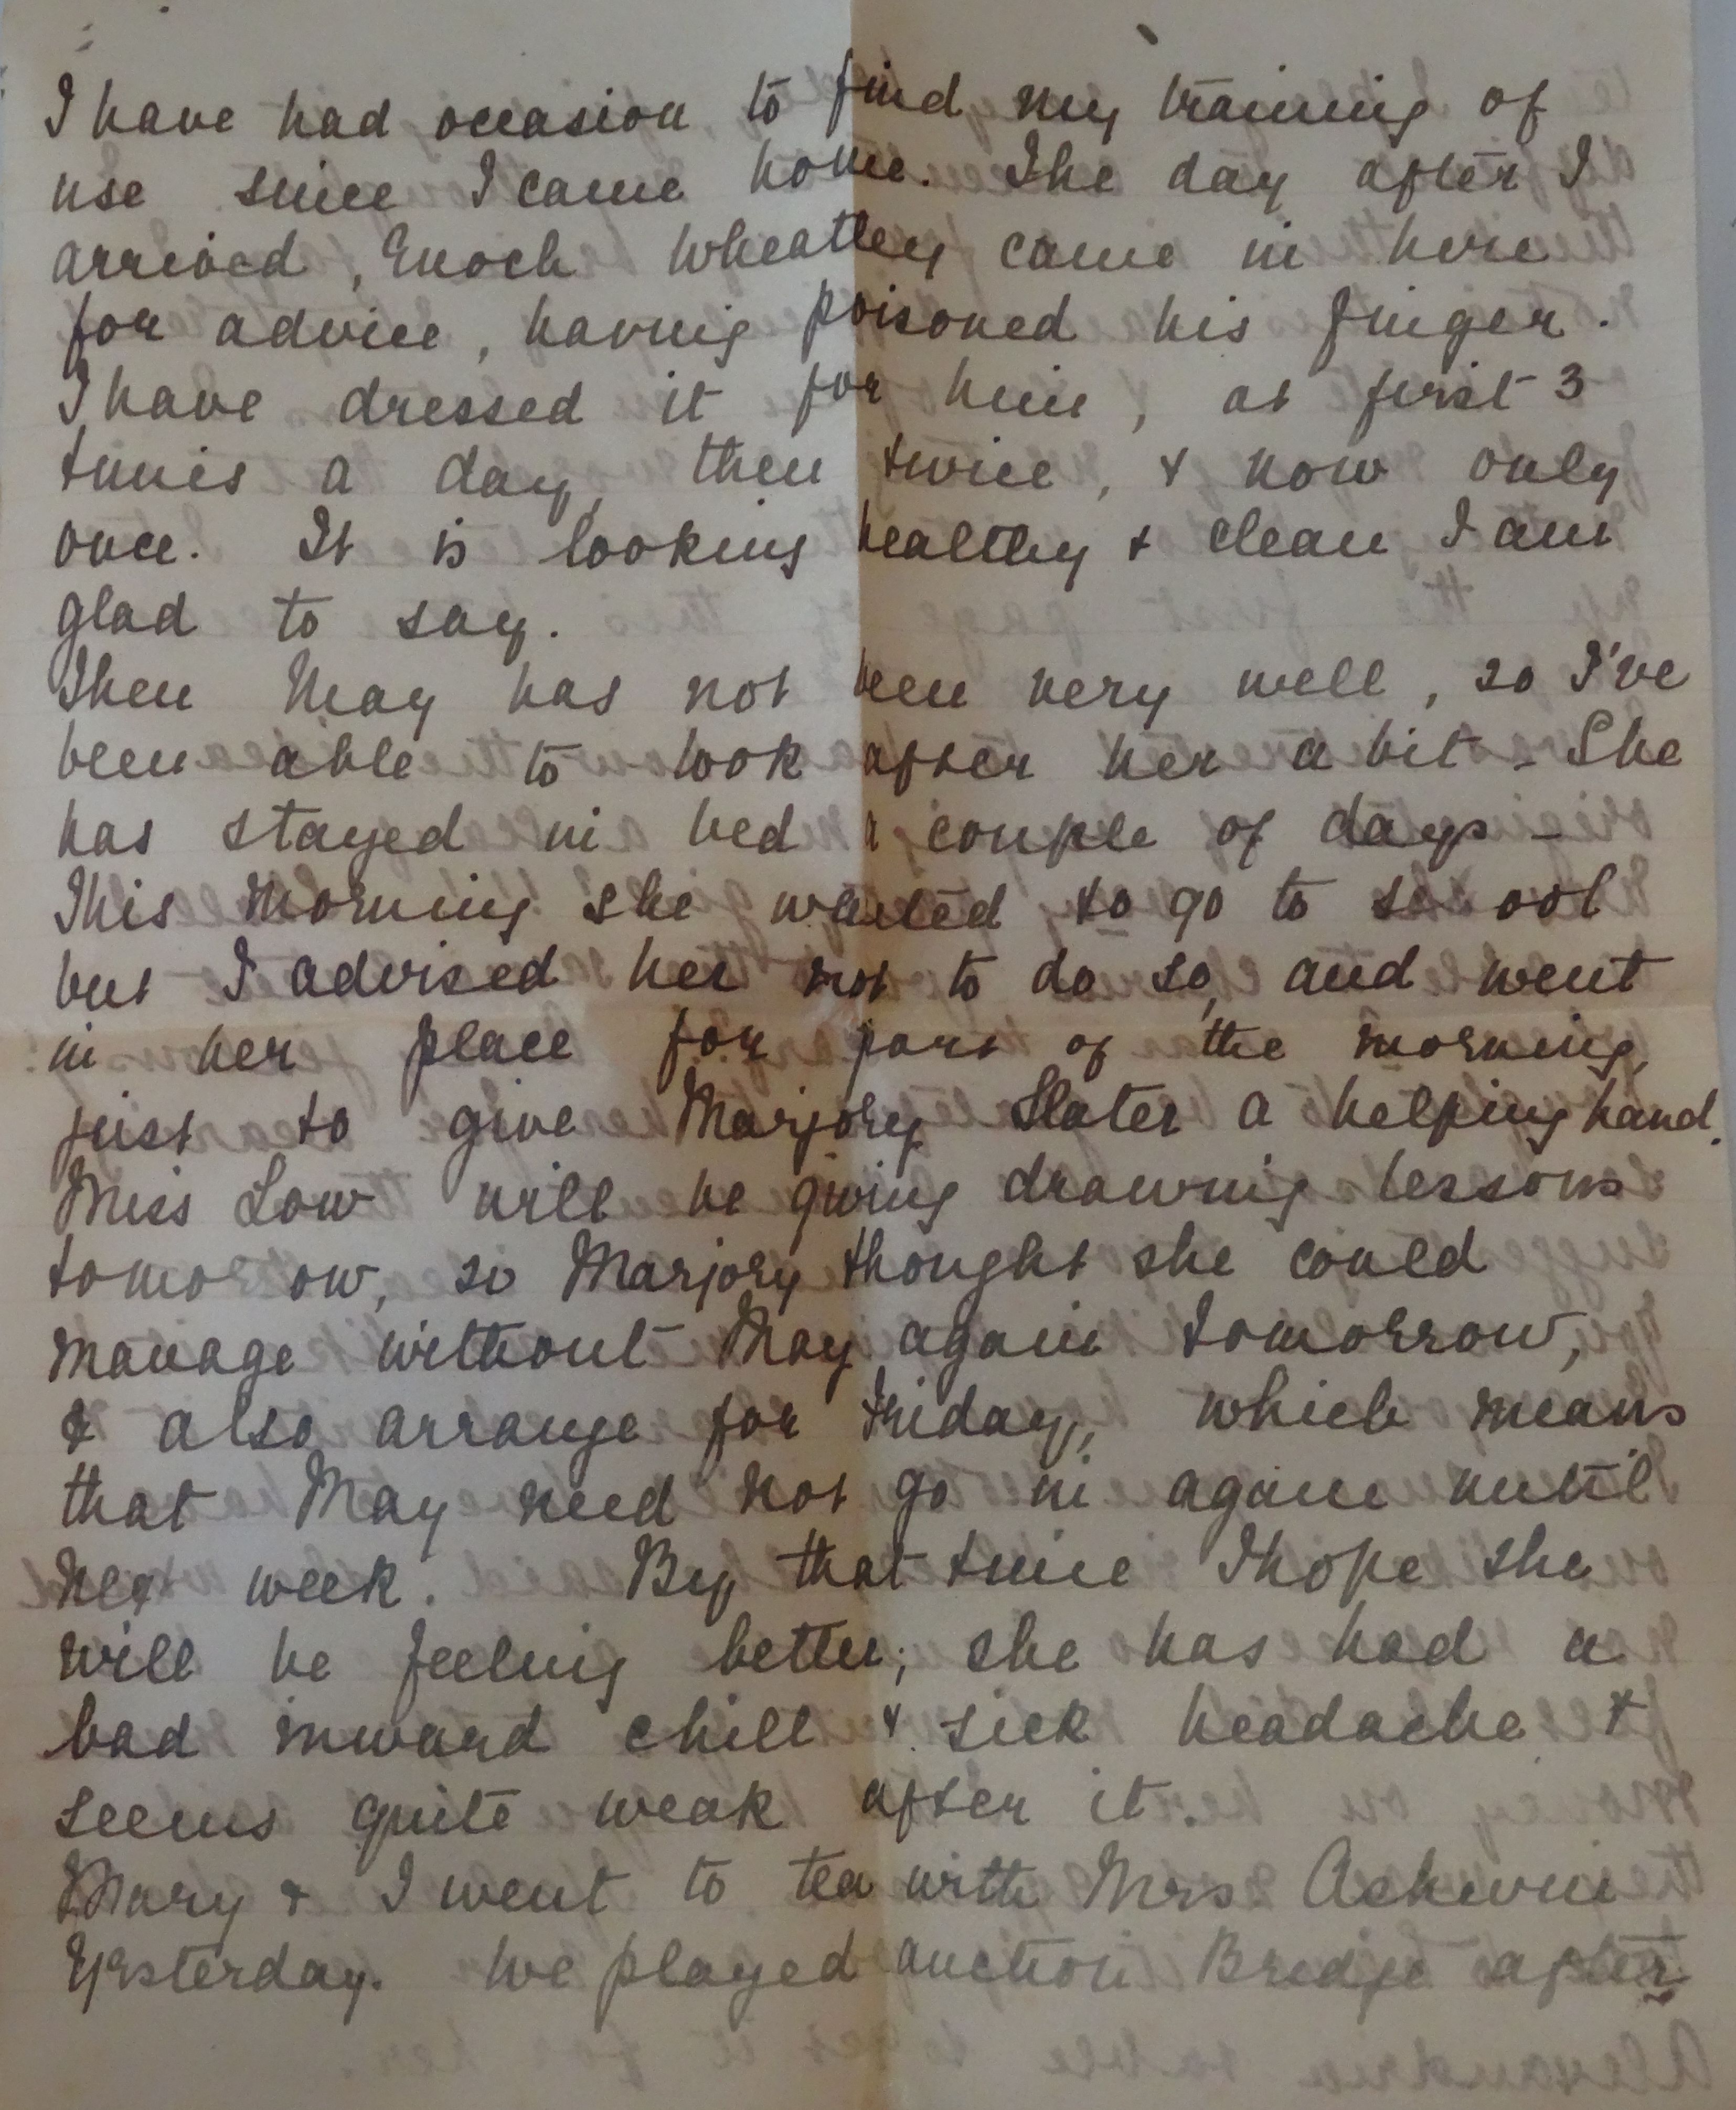 I have had occasion to find my training of
use since I came home. The day after I
arrived, Enoch Wheatley came in here
for advice, having poisoned his finger.
I have dressed it for him, at first 3
times a day, then twice, & now only
once. It is looking healthy & clean I am
glad to say.
Then May has not been very well, so I've
been able to look after her a bit - She
has stayed in bed a couple of days -
This morning she wanted to go to school
but I advised her not to do so, and went
in her place for part of the morning,
just to give Marjory Slater a helping hand.
Miss Low will be giving drawing lessons
tomorrow, so Marjory thought she could
manage without May again tomorrow,
& also arrange for Friday, which means
that May need not go in again until
next week. By that time I hope she
will be feeling better; she has had a
bad inward chill & sick headache &
seems quite weak after it.
Mary & I went to tea with Mrs Ashwin
Yesterday. We played auction Bridge after